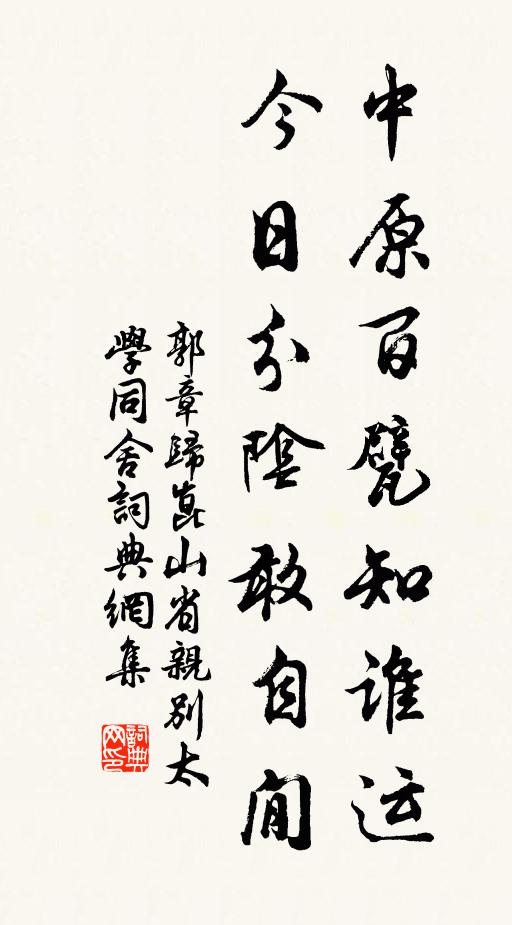 中原百甓知谁运
今日分陰敢自閒
郭章歸崑山省親別太
學同舍詞典網集
詞典网印